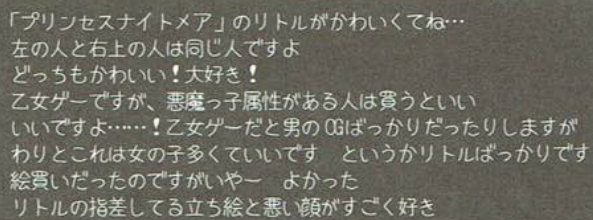 「プリンセスナイトメア」のリトルがかわいくてね…
左の人と右上の人は同じ人ですよ
どっちもかわいい！大好き！
乙女ゲーですが、悪魔っ子属性がある人は買うといい
いいですよ……！乙女ゲーだと男のCGばっかりだったりしますが
わりとこれは女の子多くていいです　というかリトルばっかりです
絵買いだったのですがいやー　よかった
リトルの指差してる立ち絵と悪い顔がすごく好き